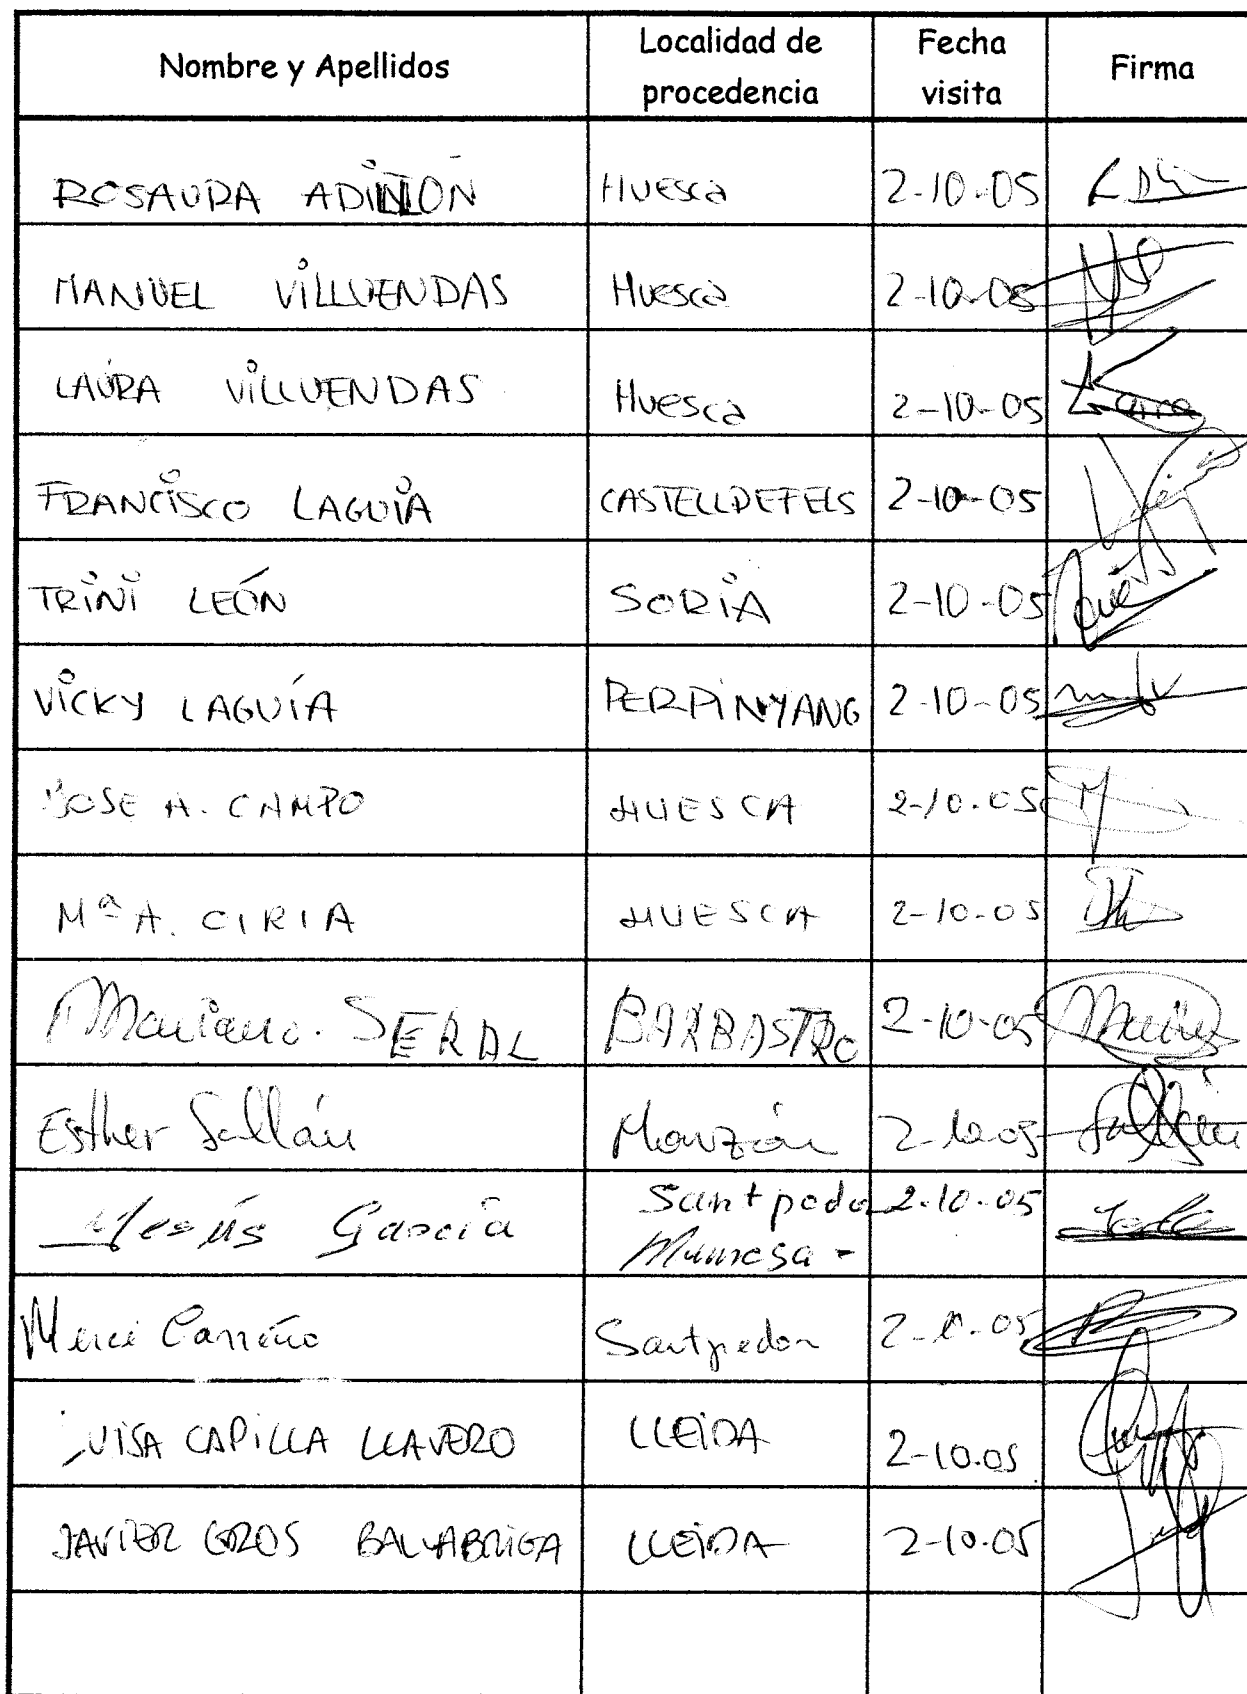 Nombre y Apellidos Localidad de procedencia Fecha visita Firma
ROSAURA ADIÑON Huesca 2-10-05
MANUEL VILLUENDAS Huesca 2-10-05
LAURA VILLUENDAS Huesca 2-10-05
FRANCISCO LAGUIA CASTELLDEFELS 2-10-05
TRINI LEÓN SORIA 2-10-05
VICKY LAGUÍA PERPINYANG 2-10-05
JOSE A. CAMPO HUESCA 2-10-05
Mª A. CIRIA HUESCA 2-10-05
Mariano. SERAL BARBASTRO 2-10-05
Esther Sallán Monzón 2-10-05
Jesús García Santpedor 2-10-05
Manresa -
Merce Carreño Santpedor 2-10-05
LUISA CAPILLA LLAVERO LLEIDA 2-10.05
JAVIER GROS LLEIDA 2-10-05